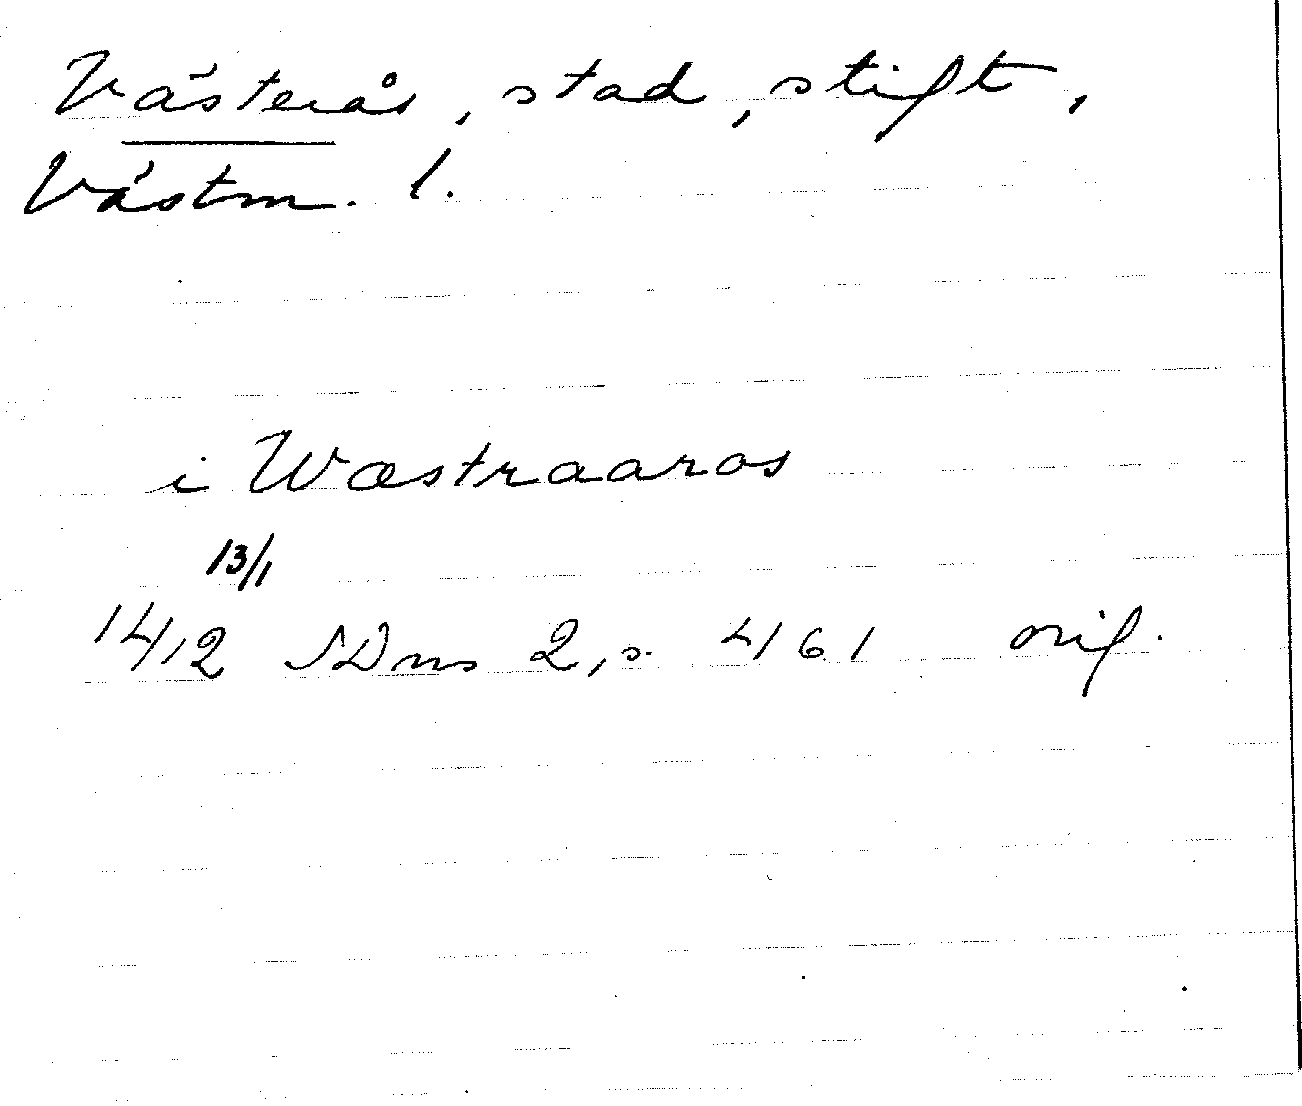 Västerås, stad, stift,
Västm. l.
i Wæstraaros
13/1
1412 SDns 2, s. 461 orig.